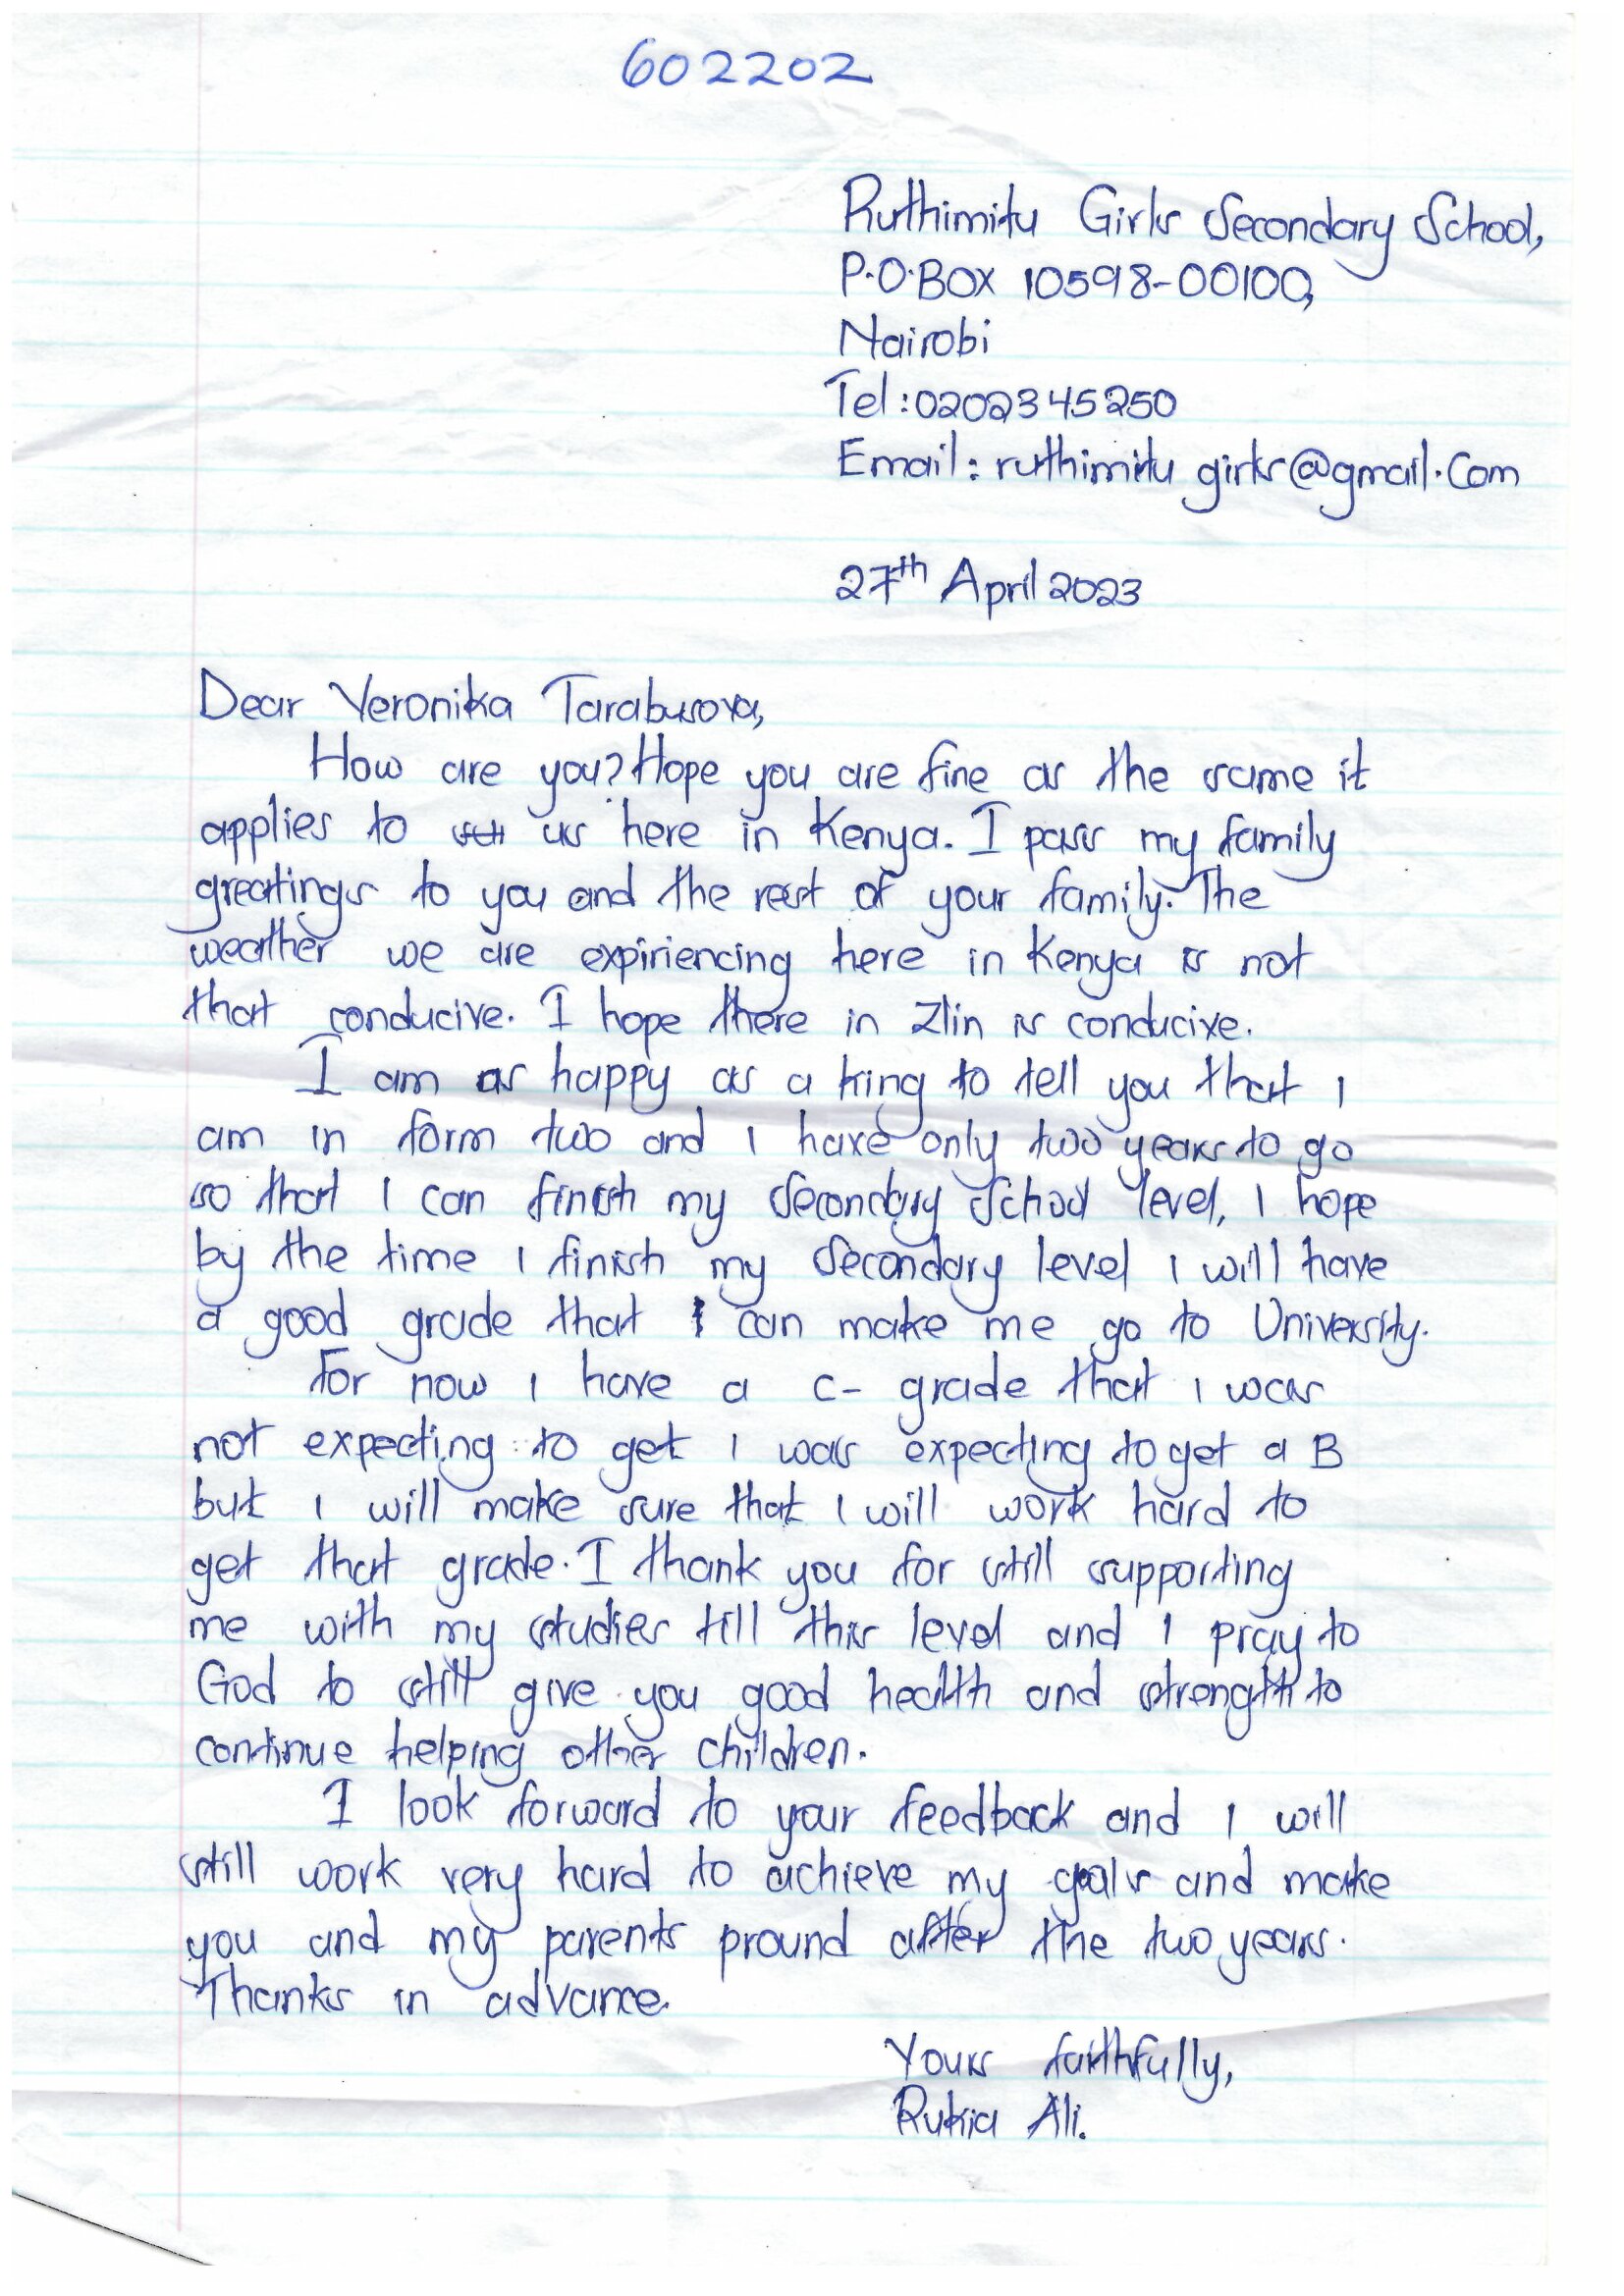 602202
Ruthimitu Girls Secondary School,
P.O.BOX 10598-00100,
Nairobi
Tel:0202345250
Email: ruthimitu girls@gmail.com
27th April 2023
Dear Veronika Tarabusova,
How are you? Hope you are fine as the same it
applies to us here in Kenya. I pass my family
greatings to you and the rest of your family. The
weather we are expiriencing here in Kenya is not
that conducive. I hope there in Zlin is conducive.
I am as happy as a king to tell you that I
am in form two and I have only two years to go
so that I can finish my Secondary School level, I hope
by the time I finish my Secondary level I will have
a good grade that can make me go to University.
For now I have a c- grade that I was
not expecting to get I was expecting to get a B
but I will make sure that I will work hard to
get that grade. I thank you for still supporting
me with my studies till this level and I pray to
God to still give you good health and strength to
continue helping other children.
I look forward to your feedback and I will
still work very hard to achieve my goals and make
you and my parents pround after the two years.
Thanks in advance.
Yours faithfully,
Rukia Ali.